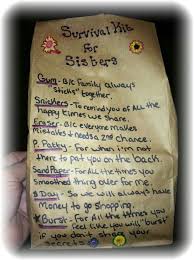 Survival Kit
for
Sisters
Gum - B/c Family always
"Sticks" together.
Snickers - To remind you of All the
happy times we share.
Eraser - B/c everyone makes
Mistakes & needs a 2nd chance.
P. Patty - For when i'm not
there to pat you on the back.
Sand Paper - For All the times you
Smoothed things over for me.
$ Day - So we will always have
Money to go Shopping.
*Burst - For All the times you
Feel like you will "burst"
if you don't share your
Secrets